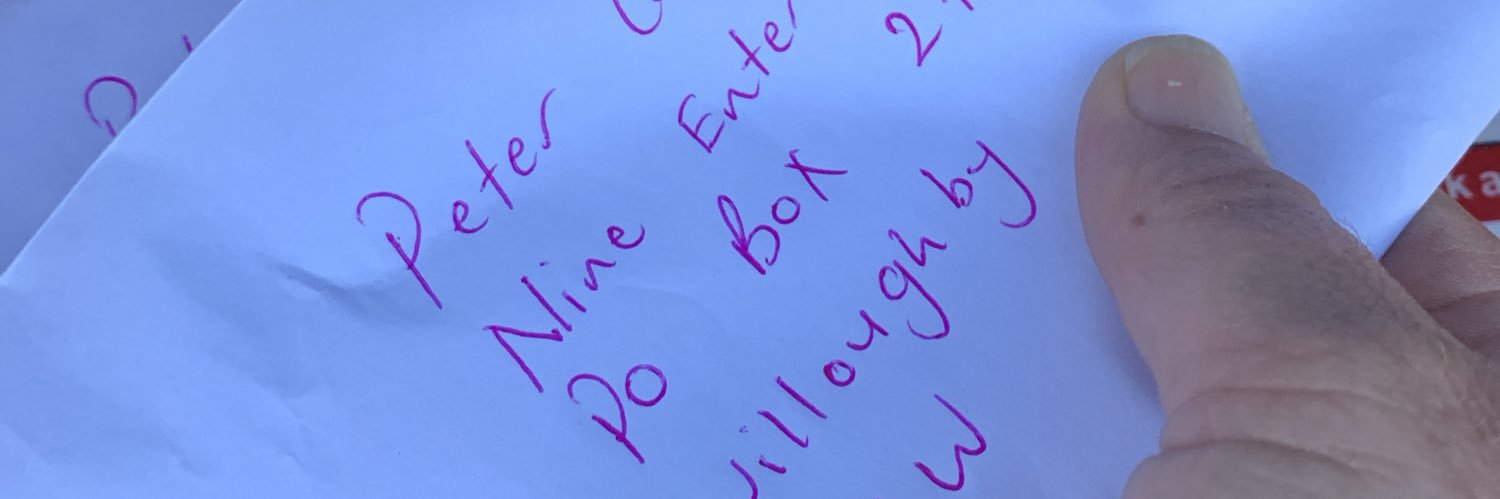 Peter
Nine Enter
PO Box 2
illoughby
W
k a